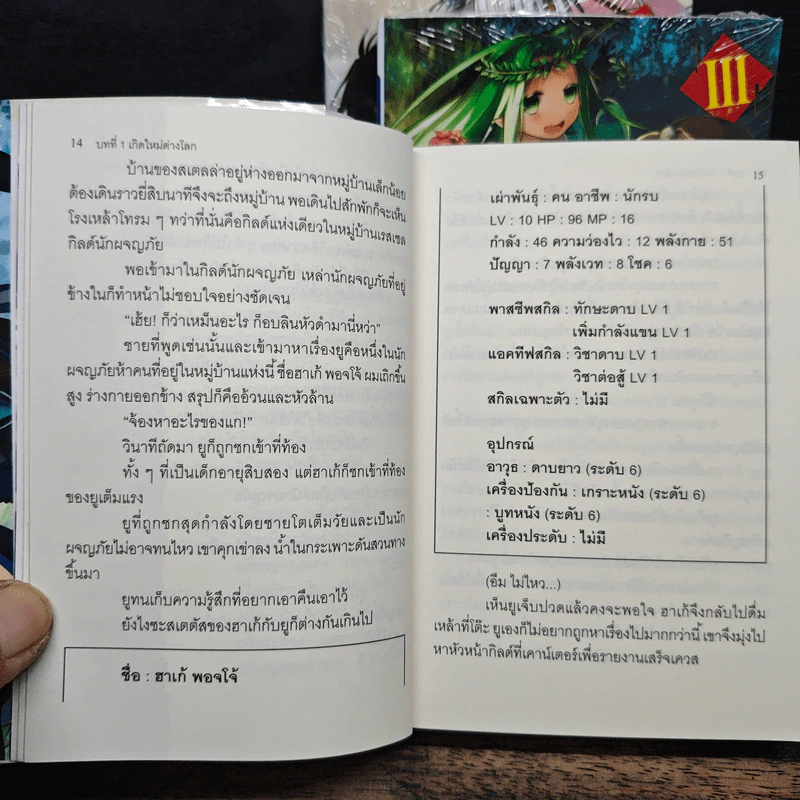 III
14 บทที่ 1 เกิดใหม่ต่างโลก
บ้านของสเตลล่าอยู่ห่างออกมาจากหมู่บ้านเล็กน้อย
ต้องเดินราวยี่สิบนาทีจึงจะถึงหมู่บ้าน พอเดินไปสักพักก็จะเห็น
โรงเหล้าโทรม ๆ ทว่าที่นั่นคือกิลด์แห่งเดียวในหมู่บ้านเรสเซล
กิลด์นักผจญภัย
พอเข้ามาในกิลด์นักผจญภัย เหล่านักผจญภัยที่อยู่
ข้างในก็ทำหน้าไม่ชอบใจอย่างชัดเจน
“เฮ้ย! ก็ว่าเหม็นอะไร ก็อบลินหัวดำมานี่หว่า”
ชายที่พูดเช่นนั้นและเข้ามาหาเรื่องยูคือหนึ่งในนัก
ผจญภัยห้าคนที่อยู่ในหมู่บ้านแห่งนี้ ชื่อฮาเก้ พอจโจ้ ผมเถิกขึ้น
สูง ร่างกายออกข้าง สรุปก็คืออ้วนและหัวล้าน
“จ้องหาอะไรของแก!”
วินาทีถัดมา ยูก็ถูกชกเข้าที่ท้อง
ทั้ง ๆ ที่เป็นเด็กอายุสิบสอง แต่ฮาเก้ก็ชกเข้าที่ท้อง
ของยูเต็มแรง
ยูที่ถูกชกสุดกำลังโดยชายโตเต็มวัยและเป็นนัก
ผจญภัยไม่อาจทนไหว เขาคุกเข่าลง น้ำในกระเพาะดันสวนทาง
ขึ้นมา
ยูทนเก็บความรู้สึกที่อยากเอาคืนเอาไว้
ยังไงซะสเตตัสของฮาเก้กับยูก็ต่างกันเกินไป
ชื่อ : ฮาเก้ พอจโจ้
15
เผ่าพันธุ์ : คน อาชีพ : นักรบ
LV : 10 HP : 96 MP : 16
กำลัง : 46 ความว่องไว : 12 พลังกาย : 51
ปัญญา : 7 พลังเวท : 8 โชค : 6
พาสซีพสกิล : ทักษะดาบ LV 1
เพิ่มกำลังแขน LV 1
แอคทีฟสกิล : วิชาดาบ LV 1
วิชาต่อสู้ LV 1
สกิลเฉพาะตัว : ไม่มี
อุปกรณ์
อาวุธ : ดาบยาว (ระดับ 6)
เครื่องป้องกัน : เกราะหนัง (ระดับ 6)
: บูทหนัง (ระดับ 6)
เครื่องประดับ : ไม่มี
(อืม ไม่ไหว...)
เห็นยูเจ็บปวดแล้วคงจะพอใจ ฮาเก้จึงกลับไปดื่ม
เหล้าที่โต๊ะ ยูเองก็ไม่อยากถูกหาเรื่องไปมากกว่านี้ เขาจึงมุ่งไป
หาหัวหน้ากิลด์ที่เคาน์เตอร์เพื่อรายงานเสร็จเควส